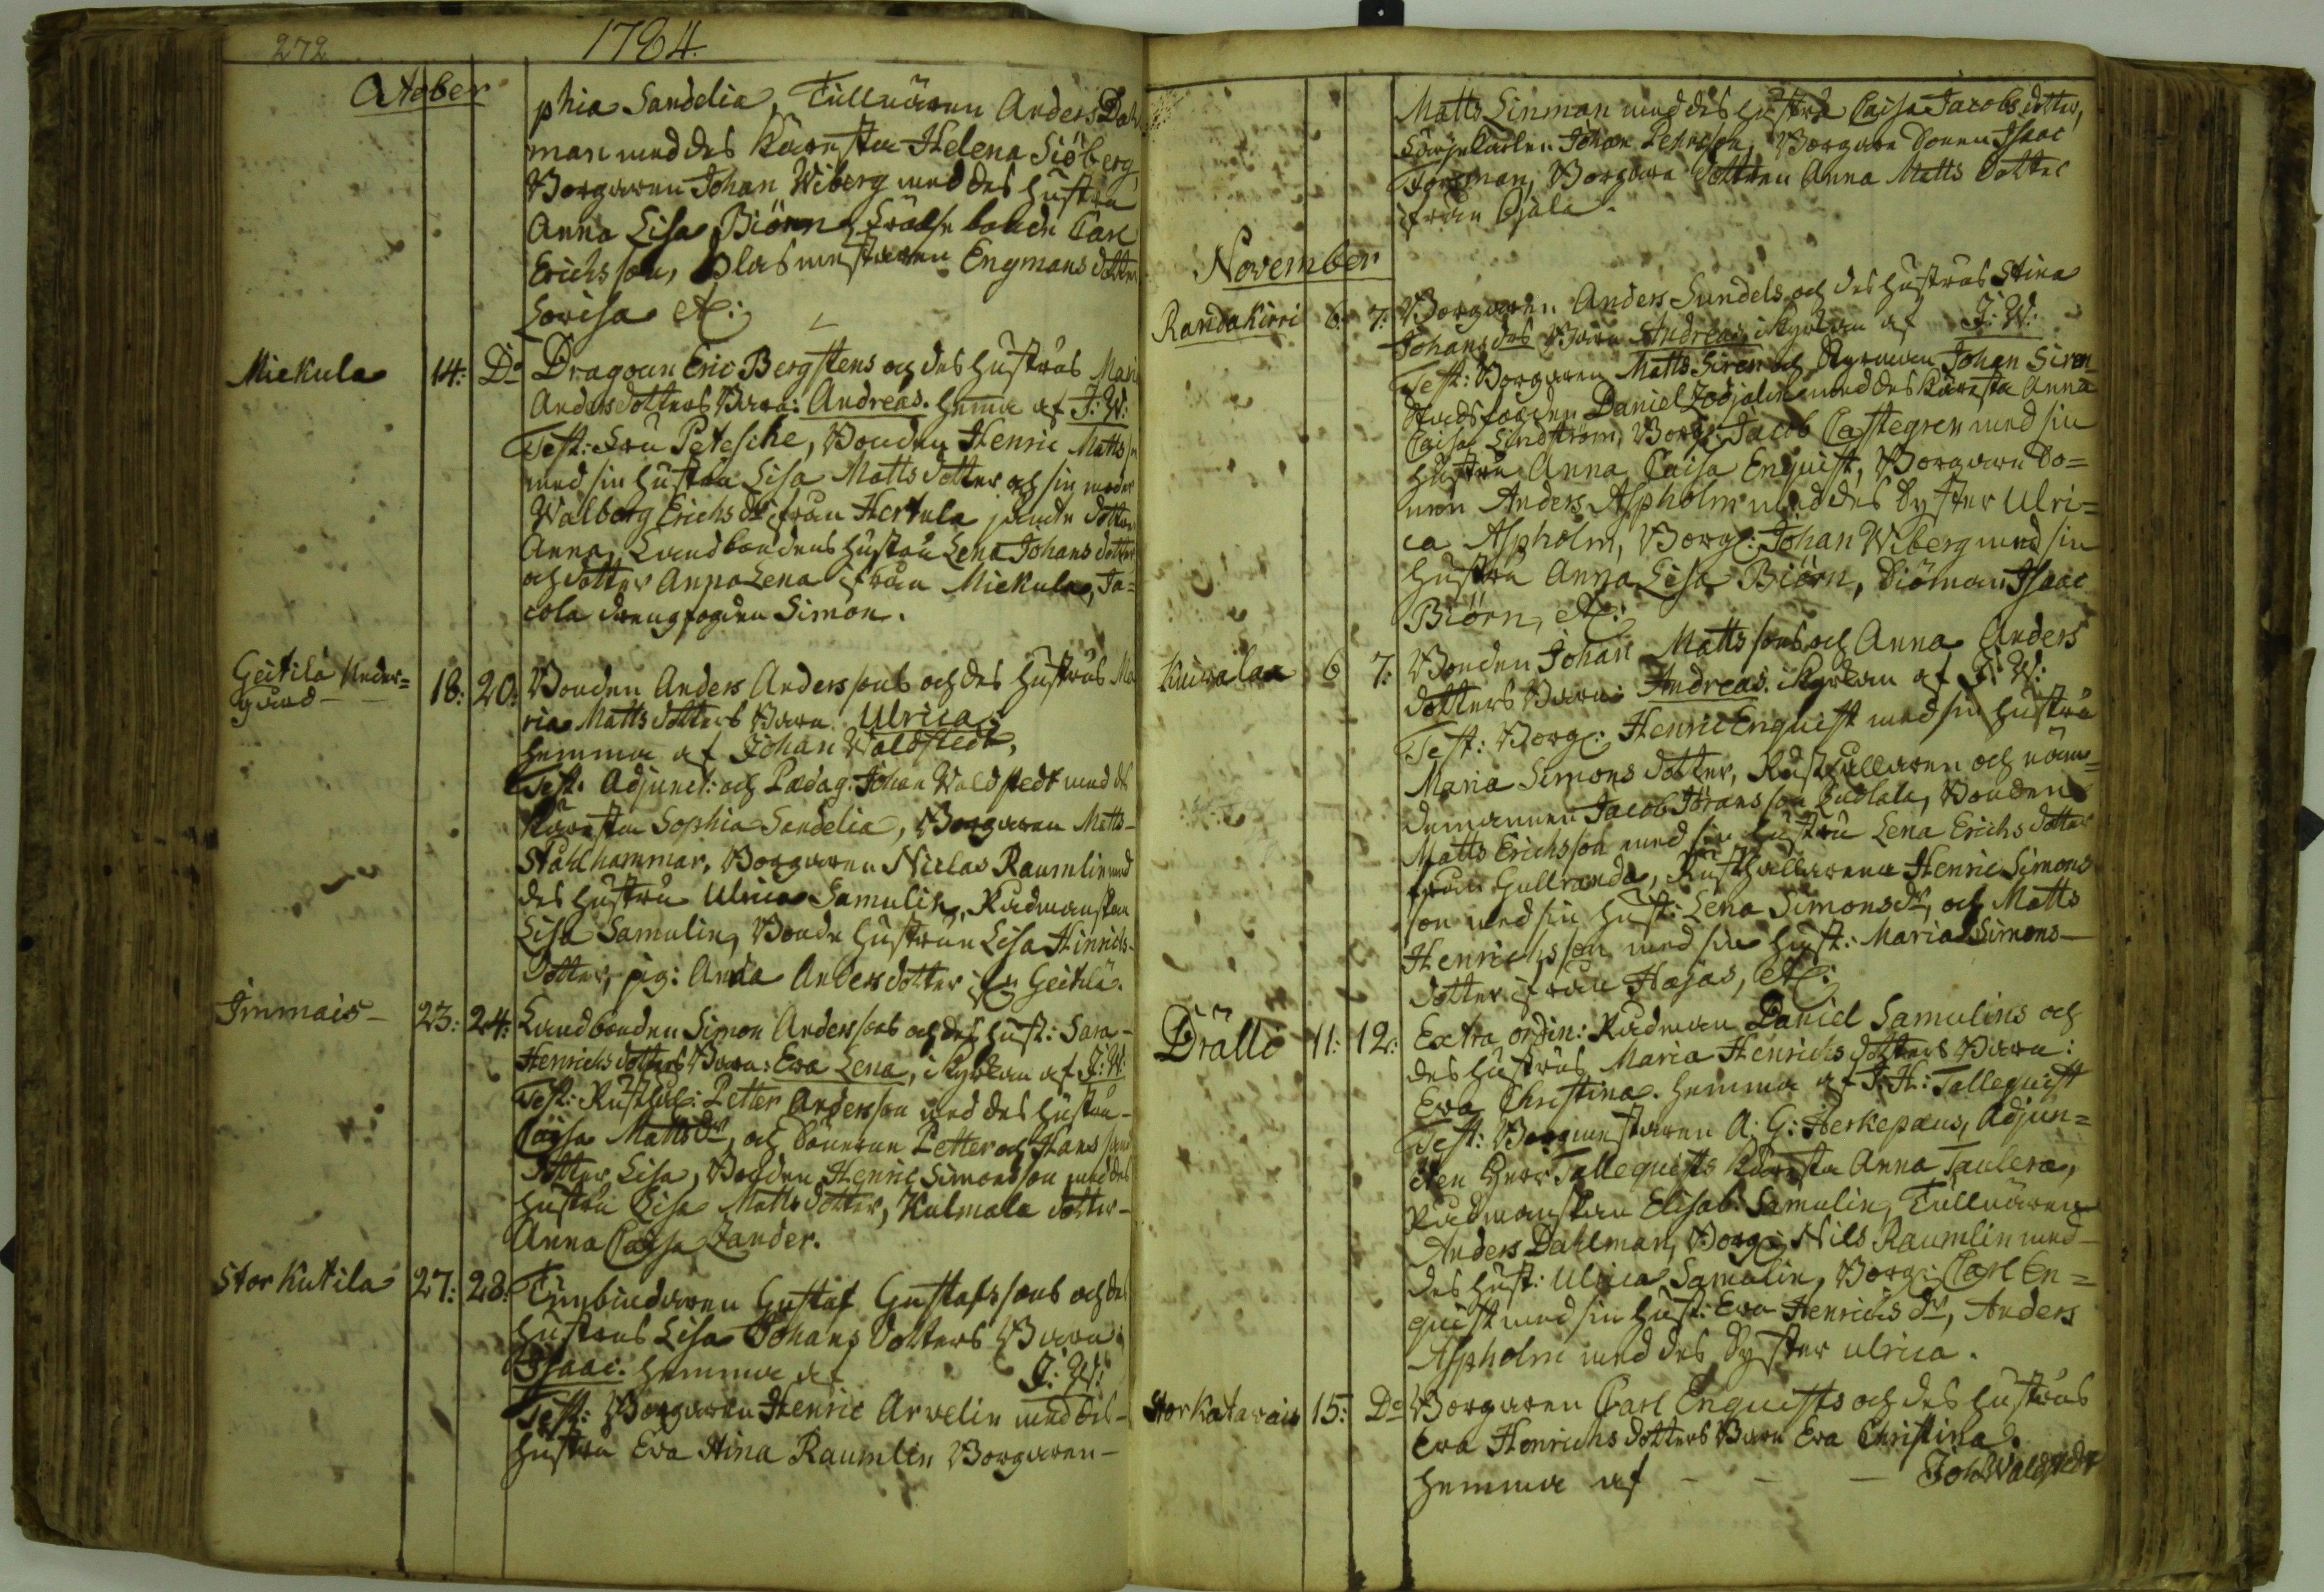 272 1784.
October
phia Sandelia, Tullnären Anders Dahl
man med des Käresta Helena Siöberg
Borgaren Johan Wiberg med des hustru
Anna Lisa Biörn, Frälse bonde Carl
Erichsson, Glasmestaren Engmans dotter
Lovisa etc:
Miekula 14: Do Dragoun Eric Bergstens och des hustrus Mari
Andersdotters Barn: Andreas. hemma af J: W:
Test: Fru Petesche, Bonden Henric Matts s
med sin hustru Lisa Matts dotter och sin moder
Walborg Erichs dr från Hertula jämte dotter
Anna, Landbondens hustru Lena Johans dotter
och dotter Anna Lena från Miekula, Ja=
cola drengfogden Simon.
Geitila Neder=
gård 18: 20: Bonden Anders Anderssons och des hustrus Ma
ria Matts dotters Barn Ulrica
hemma af Johan Waldstedt,
Test. Adjunct: och Pædag: Johan Waldstedt med ds
Käresta Sophia Sandelia, Borgaren Matts
Stålhammar, Borgaren Niclas Raumlin med
des hustru Ulrica Samulin, Rådmanskan
Lisa Samulin, Bonde hustrun Lisa Hinrichs
dotter, pig: Anna Andersdotter fr Geitila.
Immais 23: 24: Landbonden Simon Anderssons och des hust: Sara
Henrichsdotters Barn: Eva Lena, i Kyrkan af J: W:
Test: Rusthål: Petter Andersson med des hustru
Caisa Matts dr, och Sönerne Petter och Hans samt
dotter Lisa, Bonden Henric Simonsson med des
hustru Lisa Matts dotter, Kulmala dotter
Anna Caisa Zander.
Stor Kutila 27: 28: Timbindaren Gustaf Gustafssons och des
hustrus Lisa Johans dotters Barn
Isaac. hemma af J: W:
Test: Borgaren Henric Arvelin med des
hustru Eva Stina Raumlin Borgaren
Matts Linman med des hustru Caisa Jacobs dotter,
Färjekarlen Johan Pehrsson, Borgare Sonen Isaac
Forsman, Borgare dottren Anna Matts dotter
från Ojala.
November
Randakirri 6: 7: Borgaren Anders Sundels och des hustrus Stina
Johans des Barn Andreas, i Kyrkan af J: W:
Test: Borgaren Matts Siren och Ryttaren Johan Siren
Stadsfogden Daniel med des Käresta Anna
Caisa Lindström, Borg: Jacob Castegren med sin
hustru Anna Caisa Enquist, Borgare So=
nen Anders Aspholm med des Syster Ulri=
ca Aspholm, Borg: Johan Wiberg med sin
hustru Anna Lisa Biörn, Siöman Isaac
Biörn, etc:
Kuivalax 6 7: Bonden Johan Mattssons och Anna Anders
dotters Barn: Andreas. i Kyrkan af J: W:
Test: Borg: Henric Enquist med sin hustru
Maria Simons dotter, Rusthållaren och näm=
demannen Jacob Jöransson Butlala, Bonden
Matts Erichsson med sin hustru Lena Erichs dotter
från Gullranda, Rusthållarena Henric Simons
son med sin hust: Lena Simons dr, och Matts
Henrichsson med sin hust: Maria Simons
dotter från Hajas, etc:
Drälli 11: 12: Extra ordin: Rådman Daniel Samulins och
des hustrus Maria Henrichs dotters Barn:
Eva Christina. hemma af J: H: Tallequist
Test: Borgmestaren A: G: Herkepæus, Adjun=
cten Herr Tallequists Käresta Anna Taulera,
Rådmanskan Elisab: Samulin, Tullnären
Anders Dahlman, Borg: Nils Raumlin med
des hust: Ulrica Samulin, Borg: Carl En=
quist med sin hust: Eva Henrichs dr, Anders
Aspholm med des Syster Ulrica.
Storkatavais 15: Do Borgaren Carl Enquists och des hustrus
Eva Henrichs dotters Barn Eva Christina
hemma af - - - Joh: Waldstedt